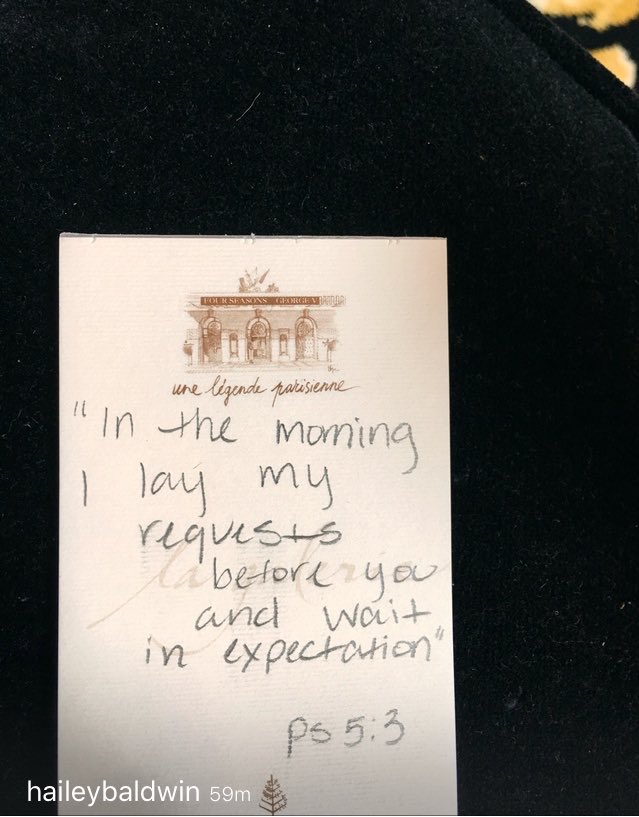 FOUR SEASONS GEORGE V
une légende parisienne
"In the morning
I lay my
requests
before you
and wait
in expectation"
ps 5:3
haileybaldwin 59m